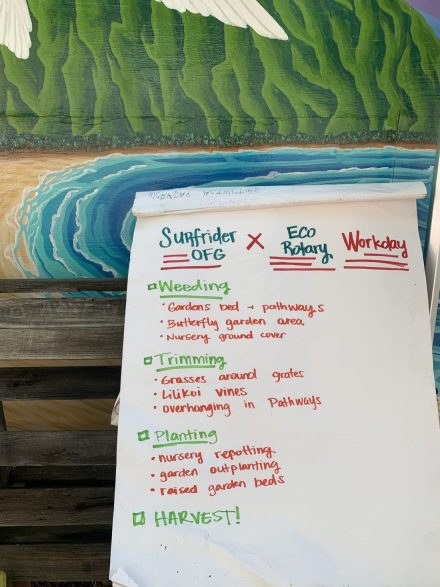 Surfrider OFG X ECO Rotary Workday
Weeding
• Gardens bed → pathways
• Butterfly garden area.
• Nursery ground cover
Trimming
• Grasses around grates
• Lilikoi vines
• overhanging in Pathways
Planting
• nursery repotting
• garden outplanting
• raised garden beds
HARVEST!